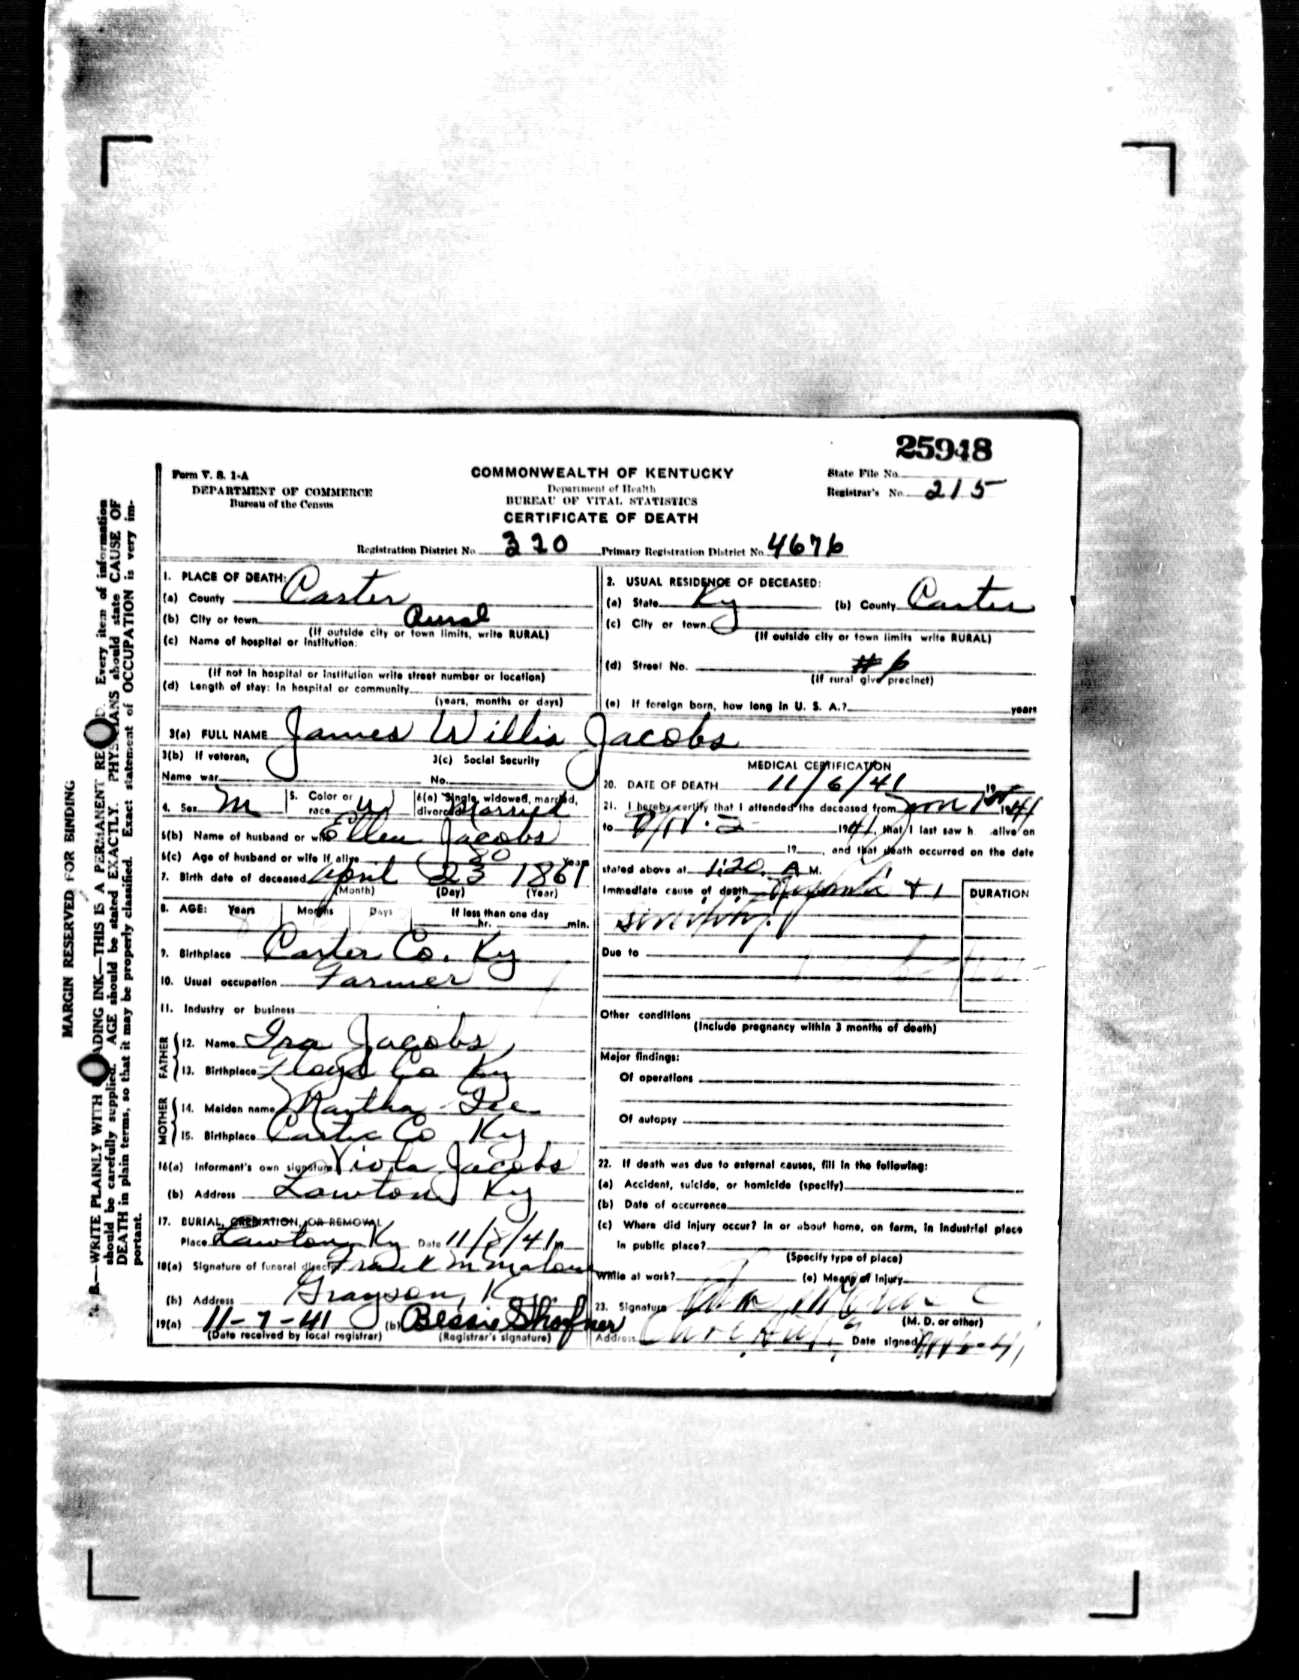 25948
Form V. S. 1-A
DEPARTMENT OF COMMERCE
Bureau of the Census
COMMONWEALTH OF KENTUCKY
Department of Health
BUREAU OF VITAL STATISTICS
CERTIFICATE OF DEATH
State File No.
Registrar's No. 215
Registration District No. 320 Primary Registration District No. 4676
MARGIN RESERVED FOR BINDING
N. B.—WRITE PLAINLY WITH ADING INK—THIS IS A PERMANENT RE D. Every item of information
should be carefully supplied. AGE should be stated EXACTLY. PHYSICIANS should state CAUSE OF
DEATH in plain terms, so that it may be properly classified. Exact statement of OCCUPATION is very im-
portant.
1. PLACE OF DEATH:
(a) County Carter
(b) City or town Rural
(If outside city or town limits, write RURAL)
(c) Name of hospital or institution:
(If not in hospital or institution write street number or location)
(d) Length of stay: In hospital or community
(years, months or days)
2. USUAL RESIDENCE OF DECEASED:
(a) State Ky (b) County Carter
(c) City or town
(If outside city or town limits write RURAL)
(d) Street No. #6
(If rural give precinct)
(e) If foreign born, how long in U. S. A.? years
3(a) FULL NAME James Willis Jacobs
3(b) If veteran,
Name war
3(c) Social Security
No.
4. Sex M
5. Color or race W
6(a) Single, widowed, married, divorced Married
6(b) Name of husband or wife Ellen Jacobs
6(c) Age of husband or wife if alive 80 years
7. Birth date of deceased April 23 1861
(Month) (Day) (Year)
8. AGE: Years Months Days If less than one day
hr. min.
9. Birthplace Carter Co. Ky
10. Usual occupation Farmer
11. Industry or business
FATHER
12. Name Ira Jacobs
13. Birthplace Floyd Co Ky
MOTHER
14. Maiden name Martha
15. Birthplace Carter Co Ky
16(a) Informant's own signature Viola Jacobs
(b) Address Lawton Ky
17. BURIAL, CREMATION, OR REMOVAL
Place Lawton Ky Date 11/8/41
18(a) Signature of funeral director
(b) Address Grayson, Ky
19(a) 11-7-41 (b) Bessie Shofner
(Date received by local registrar) (Registrar's signature)
MEDICAL CERTIFICATION
20. DATE OF DEATH 11/6/41 19
21. I hereby certify that I attended the deceased from 1941
to 1941, that I last saw h alive on
19 , and that death occurred on the date
stated above at 1:20 A M.
Immediate cause of death
DURATION
Due to
Other conditions
(Include pregnancy within 3 months of death)
Major findings:
Of operations
Of autopsy
22. If death was due to external causes, fill in the following:
(a) Accident, suicide, or homicide (specify)
(b) Date of occurrence
(c) Where did injury occur? In or about home, on farm, in industrial place
in public place?
(Specify type of place)
While at work? (e) Means of injury
23. Signature
(M. D. or other)
Address Date signed